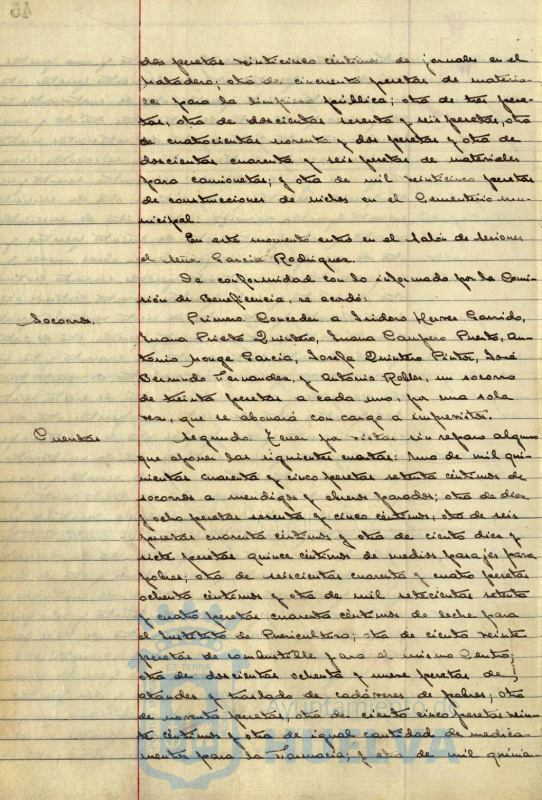 45
dos pesetas veinticinco céntimos de jornales en el
matadero; otra de cincuenta pesetas de materia-
les para la limpieza pública; otra de tres pese-
tas, otra de doscientas sesenta y seis pesetas, otra
de cuatrocientas noventa y dos pesetas y otra de
doscientas cuarenta y seis pesetas de materiales
para camionetas; y otra de mil veinticinco pesetas
de construcciones de nichos en el Cementerio mu-
nicipal.
En este momento entra en el Salón de sesiones
el Señor García Rodríguez.
De conformidad con lo informado por la Comi-
sión de Beneficencia, se acordó:
Socorros. Primero. Conceder a Isidoro Garrido,
Juana Prieto Quintero, Juana Campero Prieto, An-
tonio Monge García, Josefa Quintero Pinto, José
Bermudo Fernandez, y Antonio Robles, un socorro
de treinta pesetas a cada uno, por una sola
vez, que se abonará con cargo a imprevistos.
Cuentas Segundo. Tener por vistas sin reparo alguno
que oponer las siguientes cuentas: Una de mil qui-
nientas cuarenta y cinco pesetas setenta céntimos de
socorros a mendigos y obreros parados; otra de diez
y ocho pesetas sesenta y cinco céntimos, otra de seis
pesetas cuarenta céntimos y otra de ciento diez y
siete pesetas quince céntimos de medios pasajes para
pobres; otra de seiscientas cuarenta y cuatro pesetas
ochenta céntimos y otra de mil setecientas setenta
y cuatro pesetas cuarenta céntimos de leche para
el Instituto de Puericultura; otra de ciento veinte
pesetas de combustible para el mismo Centro;
otra de doscientas ochenta y nueve pesetas de
ataudes y traslado de cadáveres de pobres; otra
de noventa pesetas, otra de ciento cinco pesetas vein-
te céntimos y otra de igual cantidad de medica-
mentos para la Farmacia; y otra de mil quinien-
Ayuntamiento de
HUELVA